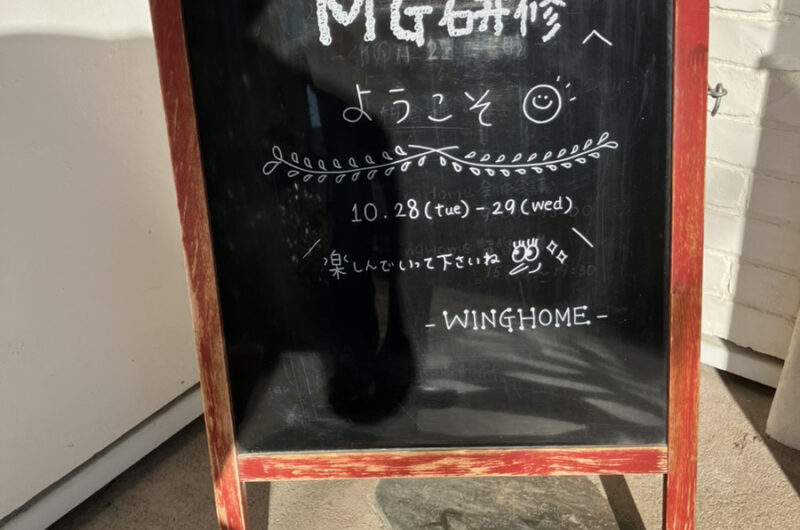 MG研修へ
ようこそ
10.28(tue)-29(wed)
楽しんでいって下さいね
-WINGHOME-